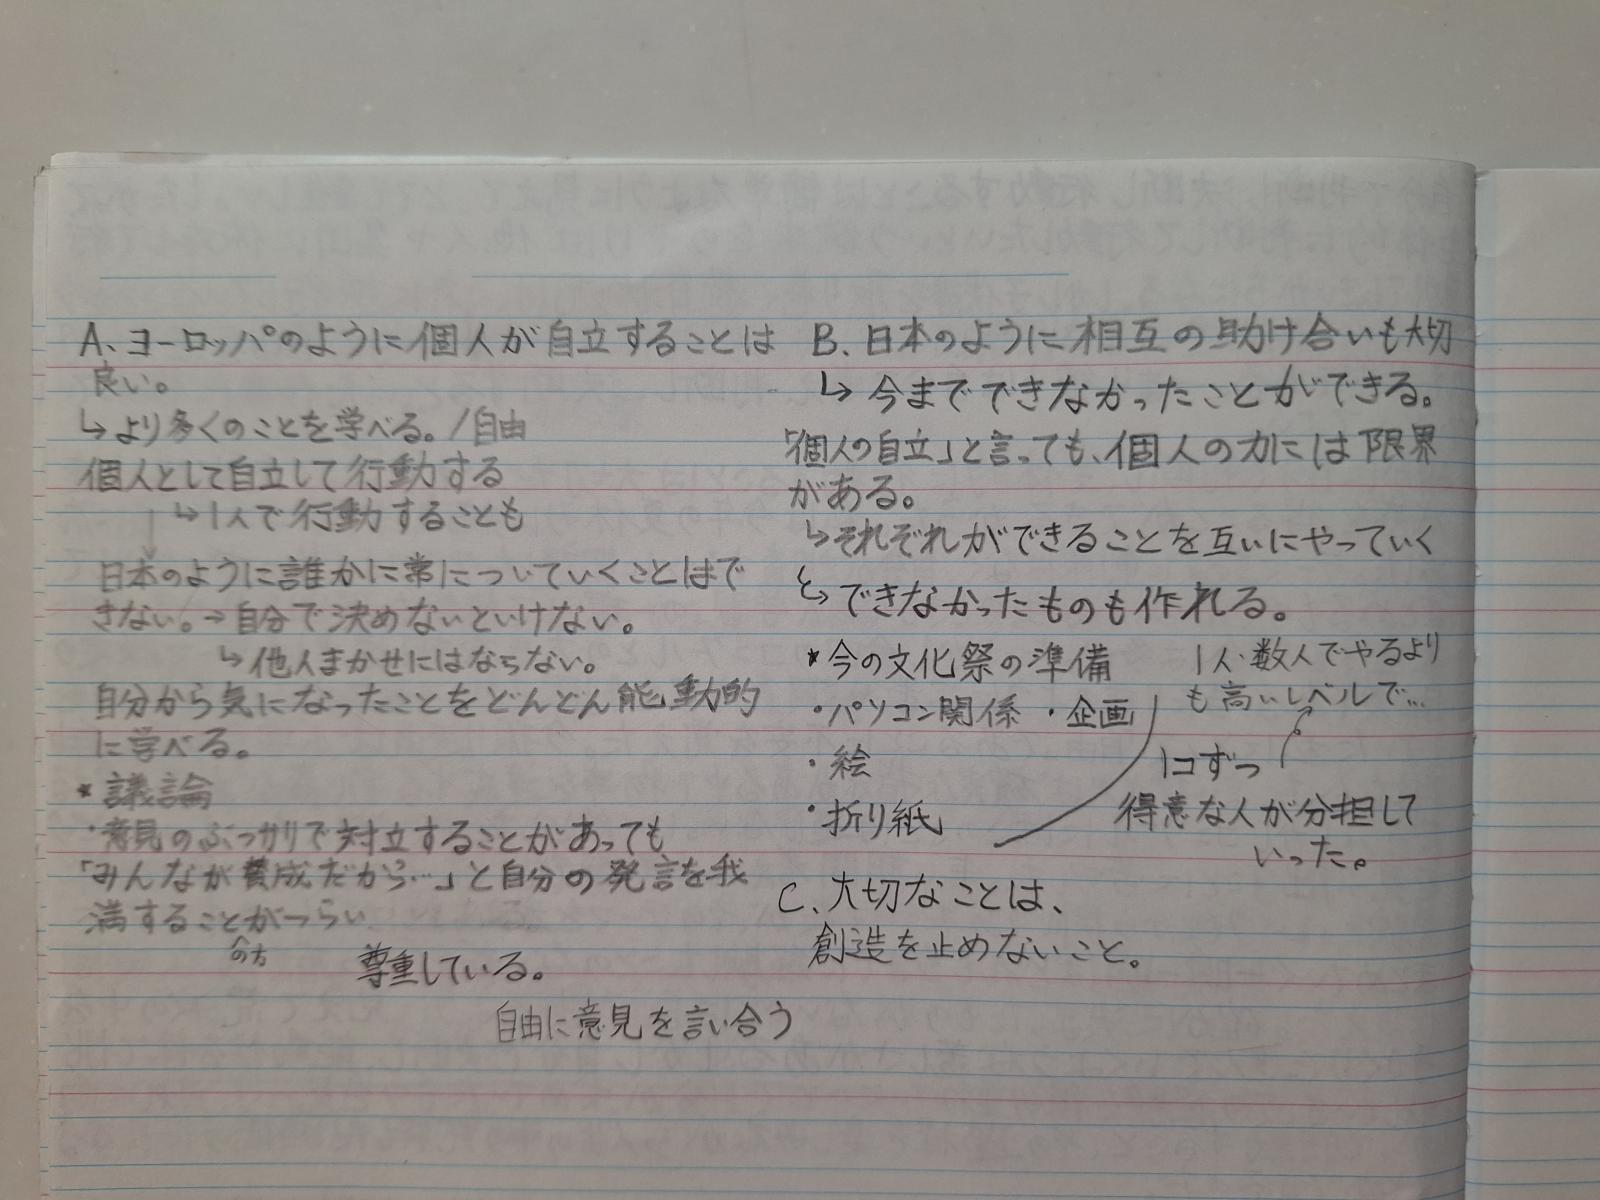 A、ヨーロッパのように個人が自立することは
良い。
↳より多くのことを学べる。/自由
個人として自立して行動する
↳1人で行動することも
日本のように誰かに常についていくことはで
きない。→自分で決めないといけない。
↳他人まかせにはならない。
自分から気になったことをどんどん能動的
に学べる。
*議論
・意見のぶつかりで対立することがあっても
「みんなが賛成だから…」と自分の発言を我
満することがつらい
の方
尊重している。
自由に意見を言い合う
B、日本のように相互の助け合いも大切
↳今までできなかったことができる。
「個人の自立」と言っても、個人の力には限界
がある。
↳それぞれができることを互いにやっていく
と→できなかったものも作れる。
*今の文化祭の準備
・パソコン関係 ・企画
・絵
・折り紙
1人・数人でやるより
も高いレベルで…
1コずつ
得意な人が分担して
いった。
C、大切なことは、
創造を止めないこと。